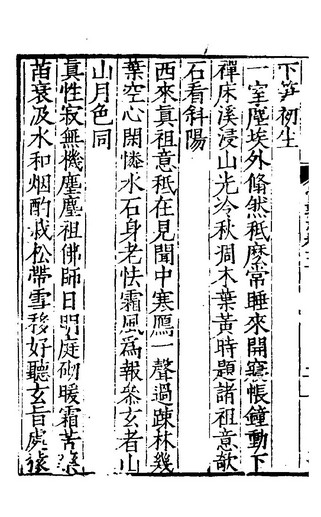 下笋初生
一室塵埃外翛然秪麼常睡來開寢帳鐘動下
禪床溪浸山光冷秋凋木葉黃時題諸祖意欹
石看斜陽
西來真祖意秪在見聞中寒鴈一聲過踈林幾
葉空心閑憐水石身老怯霜風為報叅玄者山
山月色同
真性寂無機塵塵祖佛師日明庭砌暖霜苦藥
苗衰汲水和烟酌栽松帶雪移好聽玄旨處猿